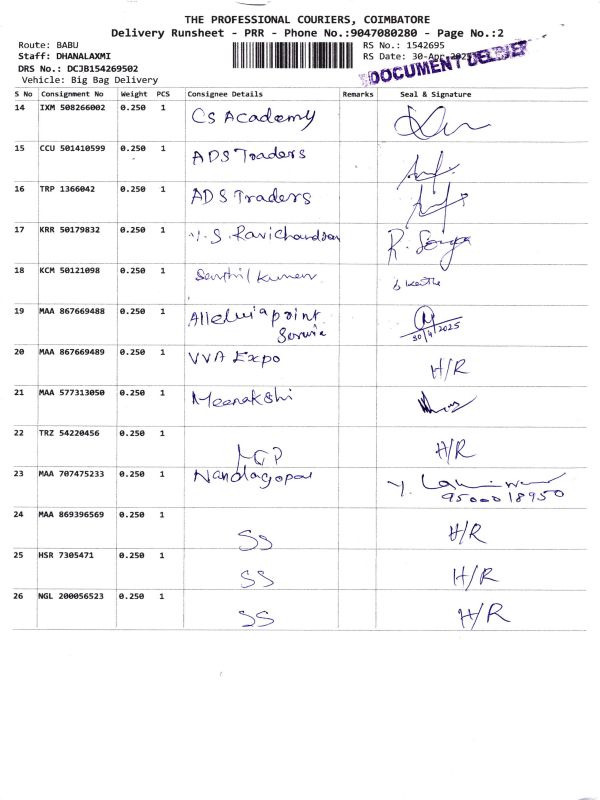 THE PROFESSIONAL COURIERS, COIMBATORE
Delivery Runsheet - PRR - Phone No.:9047080280 - Page No.:2
Route: BABU
RS No.: 1542695
Staff: DHANALAXMI
RS Date: 30-Apr-2025
DRS No.: DCJB154269502
DOCUMENT
Vehicle: Big Bag Delivery
S No Consignment No Weight PCS Consignee Details Remarks Seal & Signature
14 IXM 508266002 0.250 1 CS Academy
15 CCU 501410599 0.250 1 ADS Traders
16 TRP 1366042 0.250 1 ADS Traders
17 KRR 50179832 0.250 1 S. Ravichandran
18 KCM 50121098 0.250 1 Senthil Kumar
19 MAA 867669488 0.250 1 Alleluia point
Service 30/4/2025
20 MAA 867669489 0.250 1 VVA Expo H/R
21 MAA 577313050 0.250 1 Meenakshi
22 TRZ 54220456 0.250 1 H/R
23 MAA 707475233 0.250 1 Nandagopal
9500018950
24 MAA 869396569 0.250 1 SS H/R
25 HSR 7305471 0.250 1 SS H/R
26 NGL 200056523 0.250 1 SS H/R